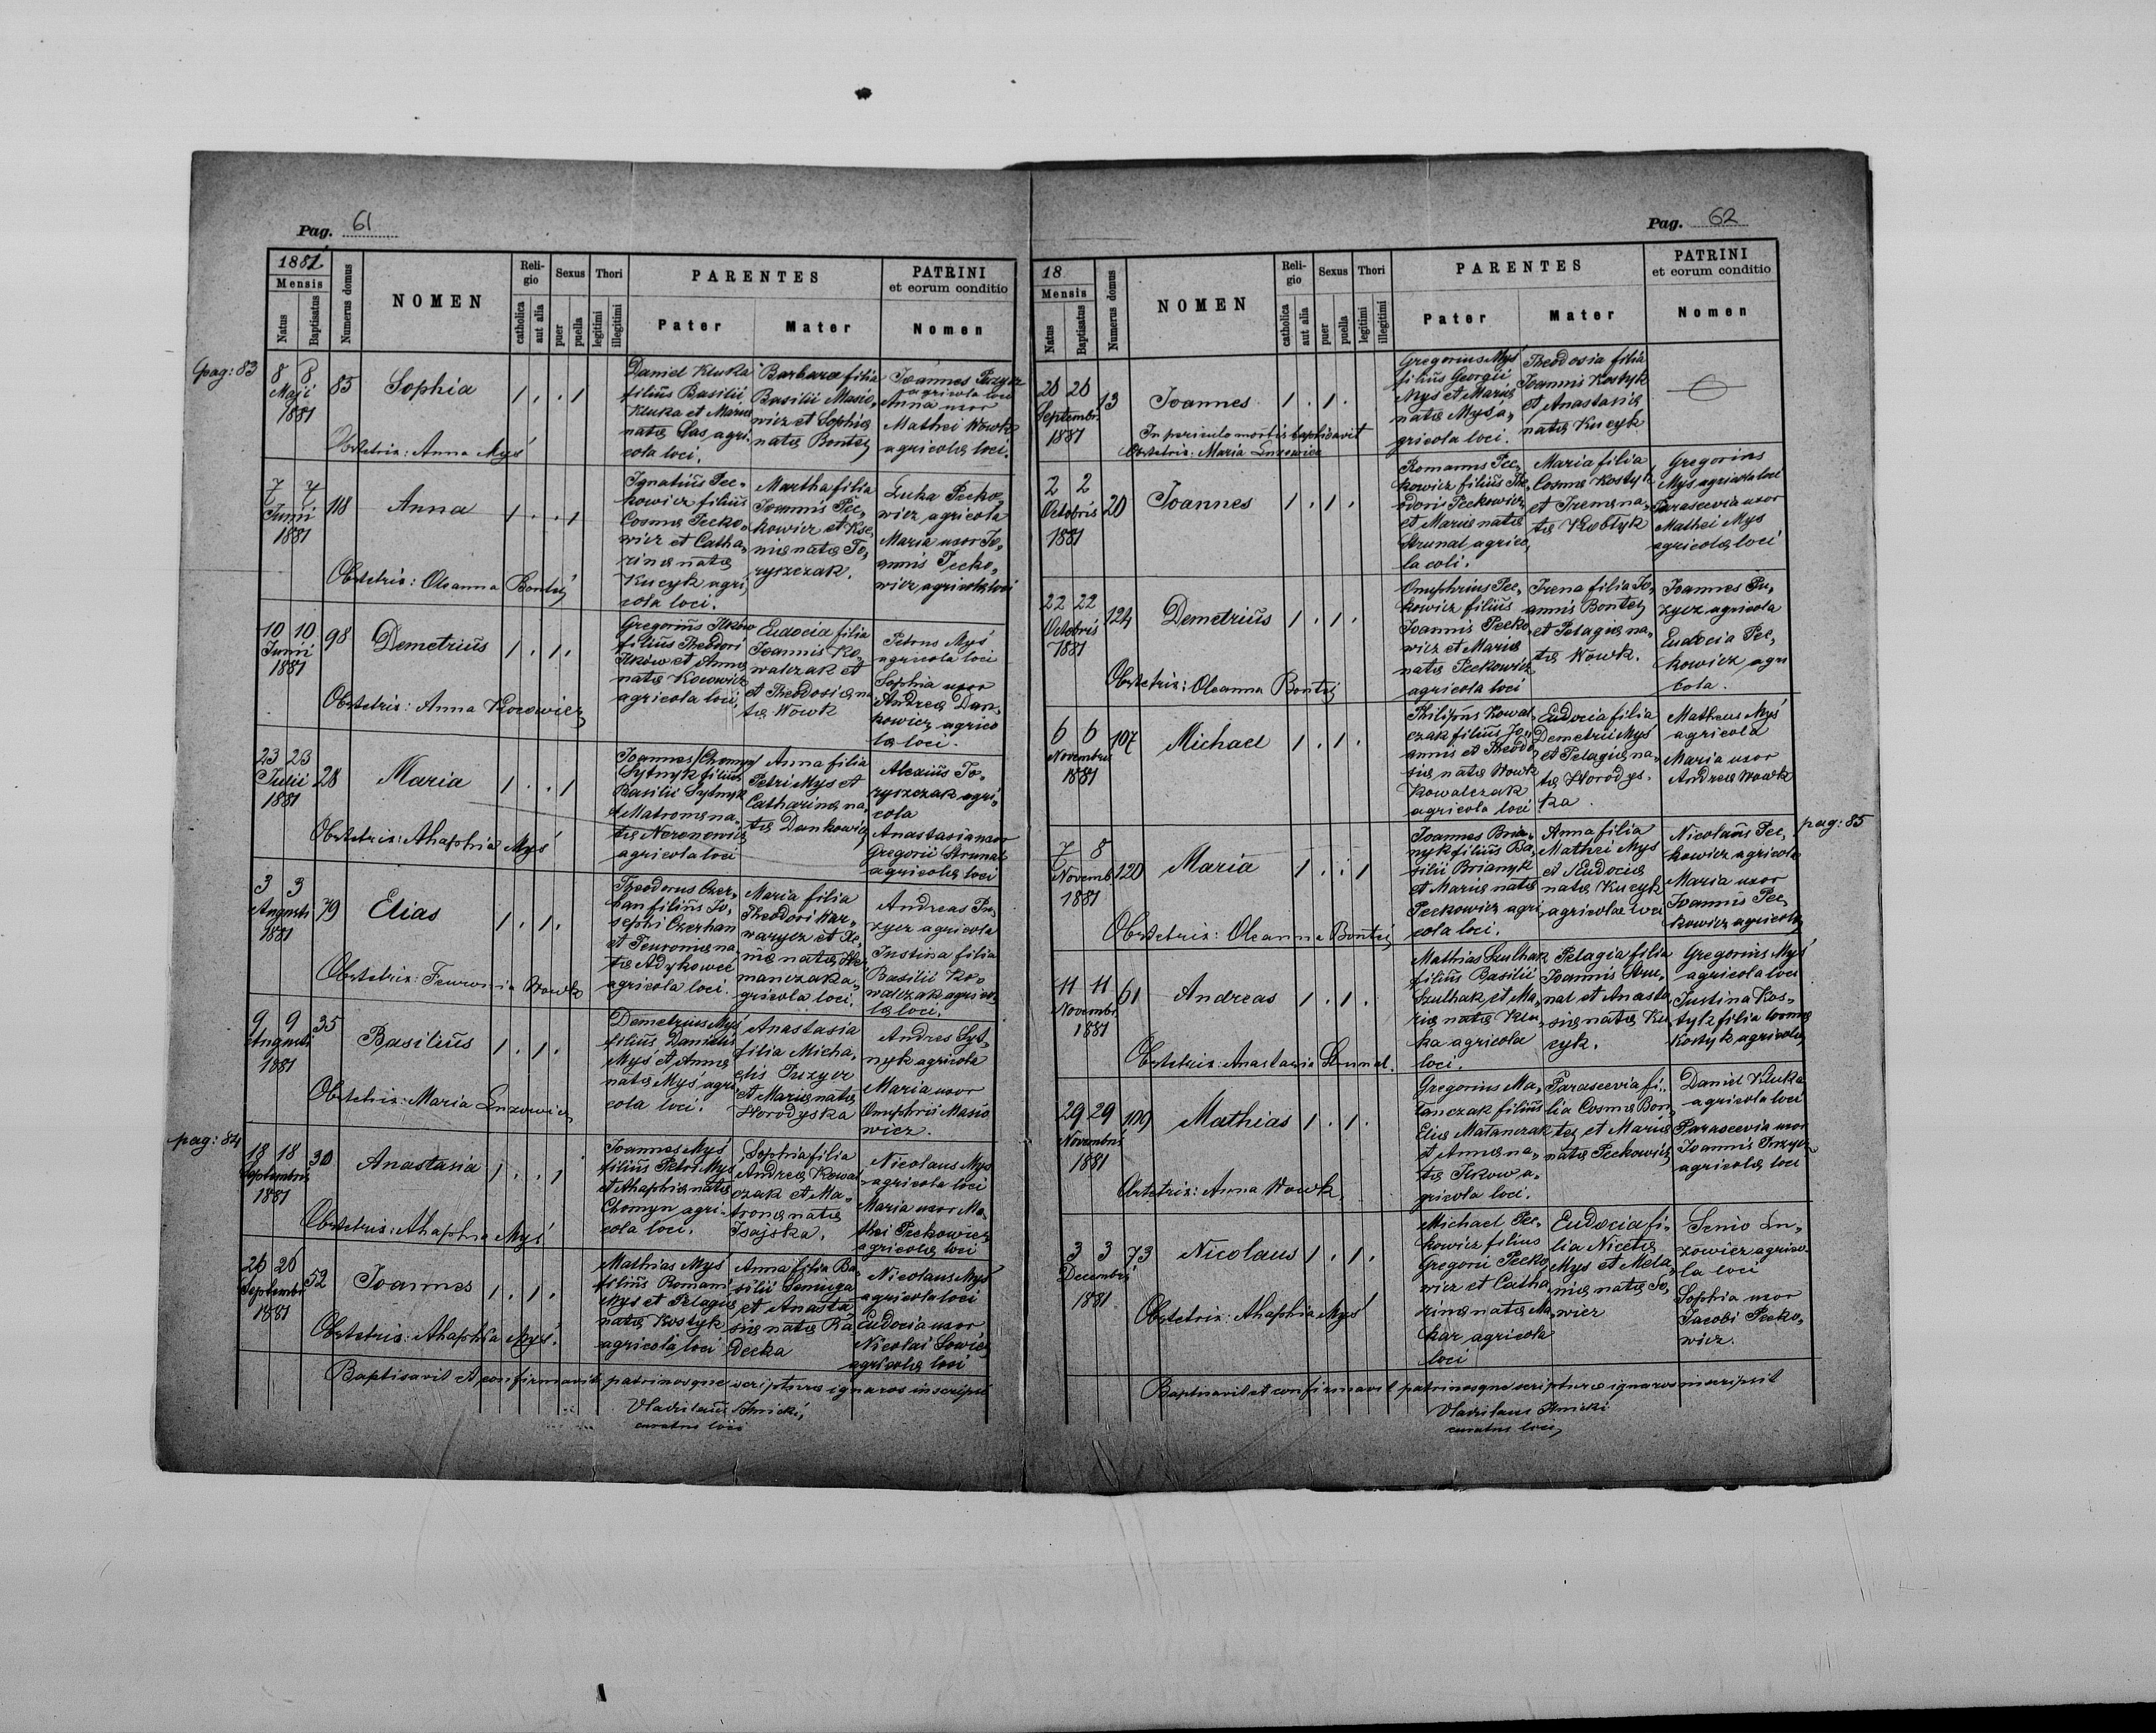 Pag. 61
1881
Mensis
Natus
Baptisatus
Numerus domus
NOMEN
Reli-
gio
catholica
aut alia
Sexus
puer
puella
Thori
legitimi
illegitimi
PARENTES
Pater
Mater
PATRINI
et eorum conditio
Nomen
pag: 83
8 8
Maji
1881
85
Sophia
1 . . 1
Obstetrix: Anna Myś
Daniel Kluka
filius Basilii
Kluka et Mariae
natae Las, agri-
cola loci.
Barbara filia
Basilii Masio-
wicz et Sophiae
natae Bontej
Joannes Puzycz
agricola loci
Anna uxor
Mathei Wowk
agricolae loci.
7 7
Junii
1881
118
Anna
1 . . 1
Obstetrix: Oleanna Bontej
Ignatius Pec-
kowicz filius
Cosmae Pecko-
wicz et Catha-
rinae natae
Kucyk agri-
cola loci.
Martha filia
Joannis Pec-
kowicz et Kse-
niae natae To-
ryszczak.
Luka Pecko-
wicz, agricola
Maria uxor Jo-
annis Pecko-
wicz, agricolae loci
10 10
Junii
1881
98
Demetrius
1 . 1 .
Obstetrix: Anna Kocowicz
Gregorius Ilkow
filius Theodori
Ilków et Annae
natae Kocowicz
agricola loci.
Eudocia filia
Joannis Ko-
walczak et
et Theodosiae na-
tae Wowk
Petrus Myś
agricola loci
Sophia uxor
Andreae Dan-
kowicz agrico
lae loci.
23 23
Julii
1881
28
Maria
1 . . 1
Obstetrix: Ahaphia Myś
Joannes /Chomyn/
Sytnyk filius
Basilii Sytnyk
et Matronae na-
tae Neronowicz
agricola loci
Anna filia
Petri Myś et
Catharinae na-
tae Dankowicz
Alexius To-
ryszczak agri-
cola
Anastasia uxor
Gregorii Strunal
agricolae loci
3 3
Augusti
1881
79
Elias
1 . 1 .
Obstetrix: Fewronia Wowk
Theodorus Ozer-
han filius Jo-
sephi Ozerhan
et Fewroniae na-
tae Adykowce
agricola loci.
Maria filia
Theodori Kar-
waryez et Xe-
niae natae
manczak a-
gricola loci.
Andreas Pu-
zycz agricola
Justina filia
Basilii Ko-
walczak agrico-
lae loci.
9 9
Augusti
1881
35
Basilius
1 . 1 .
Obstetrix: Maria Luzowicz
Demetrius Myś
filius Danielis
Myś et Annae
natae Myś agri-
cola loci.
Anastasia
filia Micha-
elis Puzycz
et Mariae natae
Horodyska
Andreas Syt-
nyk agricola
Maria uxor
Onuphrii Masio
wicz.
pag: 84
18 18
Septembris
1881
30
Anastasia
1 . . 1
Obstetrix: Ahaphia Myś
Joannes Myś
filius Petri Myś
et Ahaphiae natae
Chomyn agri-
cola loci.
Sophia filia
Andreae Kowal-
czak et Ma-
tronae natae
Isajska.
Nicolaus Myś
agricola loci
Maria uxor Ma-
thei Peckowicz
agricolae loci
26 26
Septembris
1881
52
Joannes
1 . 1 .
Obstetrix: Ahaphia Myś.
Mathias Myś
filius Romani
Myś et Pelagiae
natae Kostyk
agricola loci
Anna filia Ba-
silii Semiuga
et Anasta-
siae natae Ra-
decka
Nicolaus Myś
agricola loci
Eudocia uxor
Nicolai Sowicz
agricolae loci
Baptisavit et confirmavit patrinosque scripturae ignaros inscripsi
Vladislaus Ilnicki,
curatus loci
Pag. 62
18
Mensis
Natus
Baptisatus
Numerus domus
NOMEN
Reli-
gio
catholica
aut alia
Sexus
puer
puella
Thori
legitimi
illegitimi
PARENTES
Pater
Mater
PATRINI
et eorum conditio
Nomen
26 26
Septembris
1881
13
Joannes
1 . 1 .
In periculo mortis baptisavit
Obstetrix: Maria Luzowicz
Gregorius Myś
filius Georgii
Myś et Mariae
natae Myś a-
gricola loci.
Theodosia filia
Joannis Kostyk
et Anastasiae
natae Kucyk
2 2
Octobris
1881
20
Joannes
1 . 1 .
Romanus Pec-
kowicz filius The-
odori Peckowicz
et Mariae natae
Strunal, agrico-
la coli.
Maria filia
Cosmae Kostyk
et Irenae na-
tae Koblyk
Gregorius
Myś agricola loci
Parascevia uxor
Mathei Myś
agricolae loci
22 22
Octobris
1881
124
Demetrius
1 . 1 .
Obstetrix: Oleanna Bontej
Onuphrius Pec-
kowicz filius
Joannis Pecko-
wicz et Mariae
natae Peckowicz
agricola loci
Irena filia Jo-
annis Bontej
et Pelagiae na-
tae Wowk.
Joannes Pu-
zycz agricola
Eudocia Pec-
kowicz agri
cola.
6 6
Novembris
1881
107
Michael
1 . 1 .
Philipus Kowal-
czak filius Jo-
annis et Theodo-
siae natae Wowk
Kowalczak
agricola loci
Eudocia filia
Demetrii Myś
et Pelagiae na-
tae Horodys-
ka.
Matheus Myś
agricola
Maria uxor
Andreae Wowk
pag: 85
7 8
Novemb.
1881
120
Maria
1 . . 1
Obstetrix: Oleanna Bontej
Joannes Bria-
nyk filius Ba-
silii Brianyk
et Mariae natae
Peckowicz agri-
cola loci.
Anna filia
Mathei Myś
et Eudociae
natae Kucyk
agricolae loci
Nicolaus Pec-
kowicz agricola
Maria uxor
Joannis Pec-
kowicz agricolae
11 11
Novembr.
1881
61
Andreas
1 . 1 .
Obstetrix: Anastasia Strunal.
Mathias Szulhak
filius Basilii
Szulhak et Ma-
riae natae Klu-
ka agricola
loci.
Pelagia filia
Joannis Stru-
nal et Anasta-
siae natae Ku-
cyk.
Gregorius Myś
agricola loci
Justina Kos-
tyk filia Cosmae
Kostyk agricolae
29 29
Novembris
1881
109
Mathias
1 . 1 .
Obstetrix: Anna Wowk.
Gregorius Ma-
tanczak filius
Eliae Matanczak
et Annae na-
tae Ilkow a-
gricola loci.
Parascevia fi-
lia Cosmae Bon-
tej et Mariae
natae Peckowicz
Daniel Kluka
agricola loci
Parascevia uxor
Joannis Puzycz
agricolae loci
3 3
Decembris
1881
73
Nicolaus
1 . 1 .
Obstetrix: Ahaphia Myś
Michael Pec-
kowicz filius
Gregorii Pecko-
wicz et Catha-
rinae natae Ma-
kar agricola
loci
Eudocia fi-
lia Nicetae
Myś et Mela-
niae natae So-
wicz
Senio Lu-
zowicz agrico-
la loci
Sophia uxor
Jacobi Pecko-
wicz.
Baptisavit et confirmavit patrinosque scripturae ignaros inscripsit
Vladislaus Ilnicki
curatus loci,